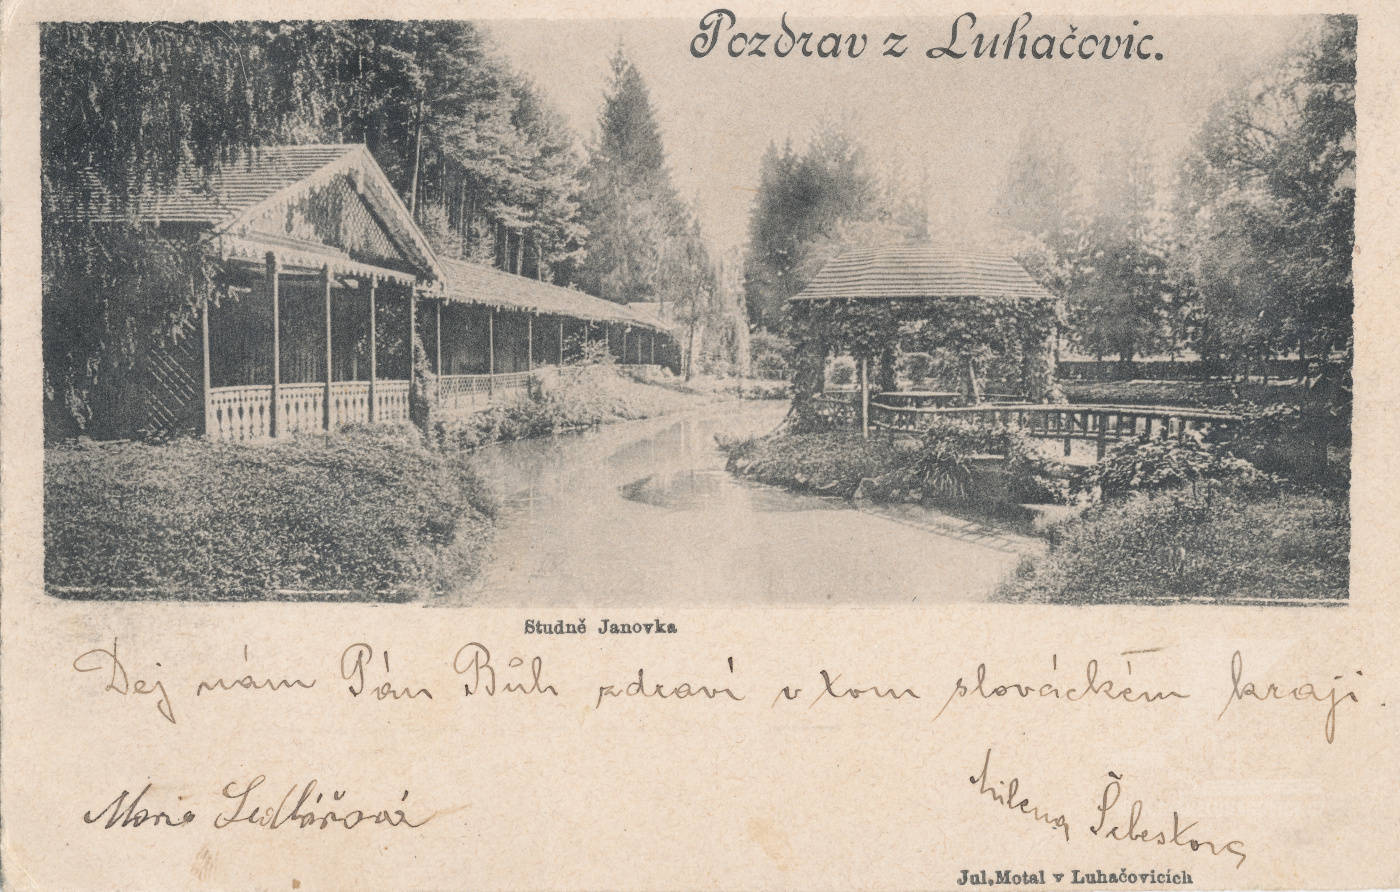 Pozdrav z Luhačovic.
Studně Janovka
Dej nám Pán Bůh zdraví v tom slováckém kraji.
Marie Sedlářová
Milena Šebestova
Jul. Motal v Luhačovicích